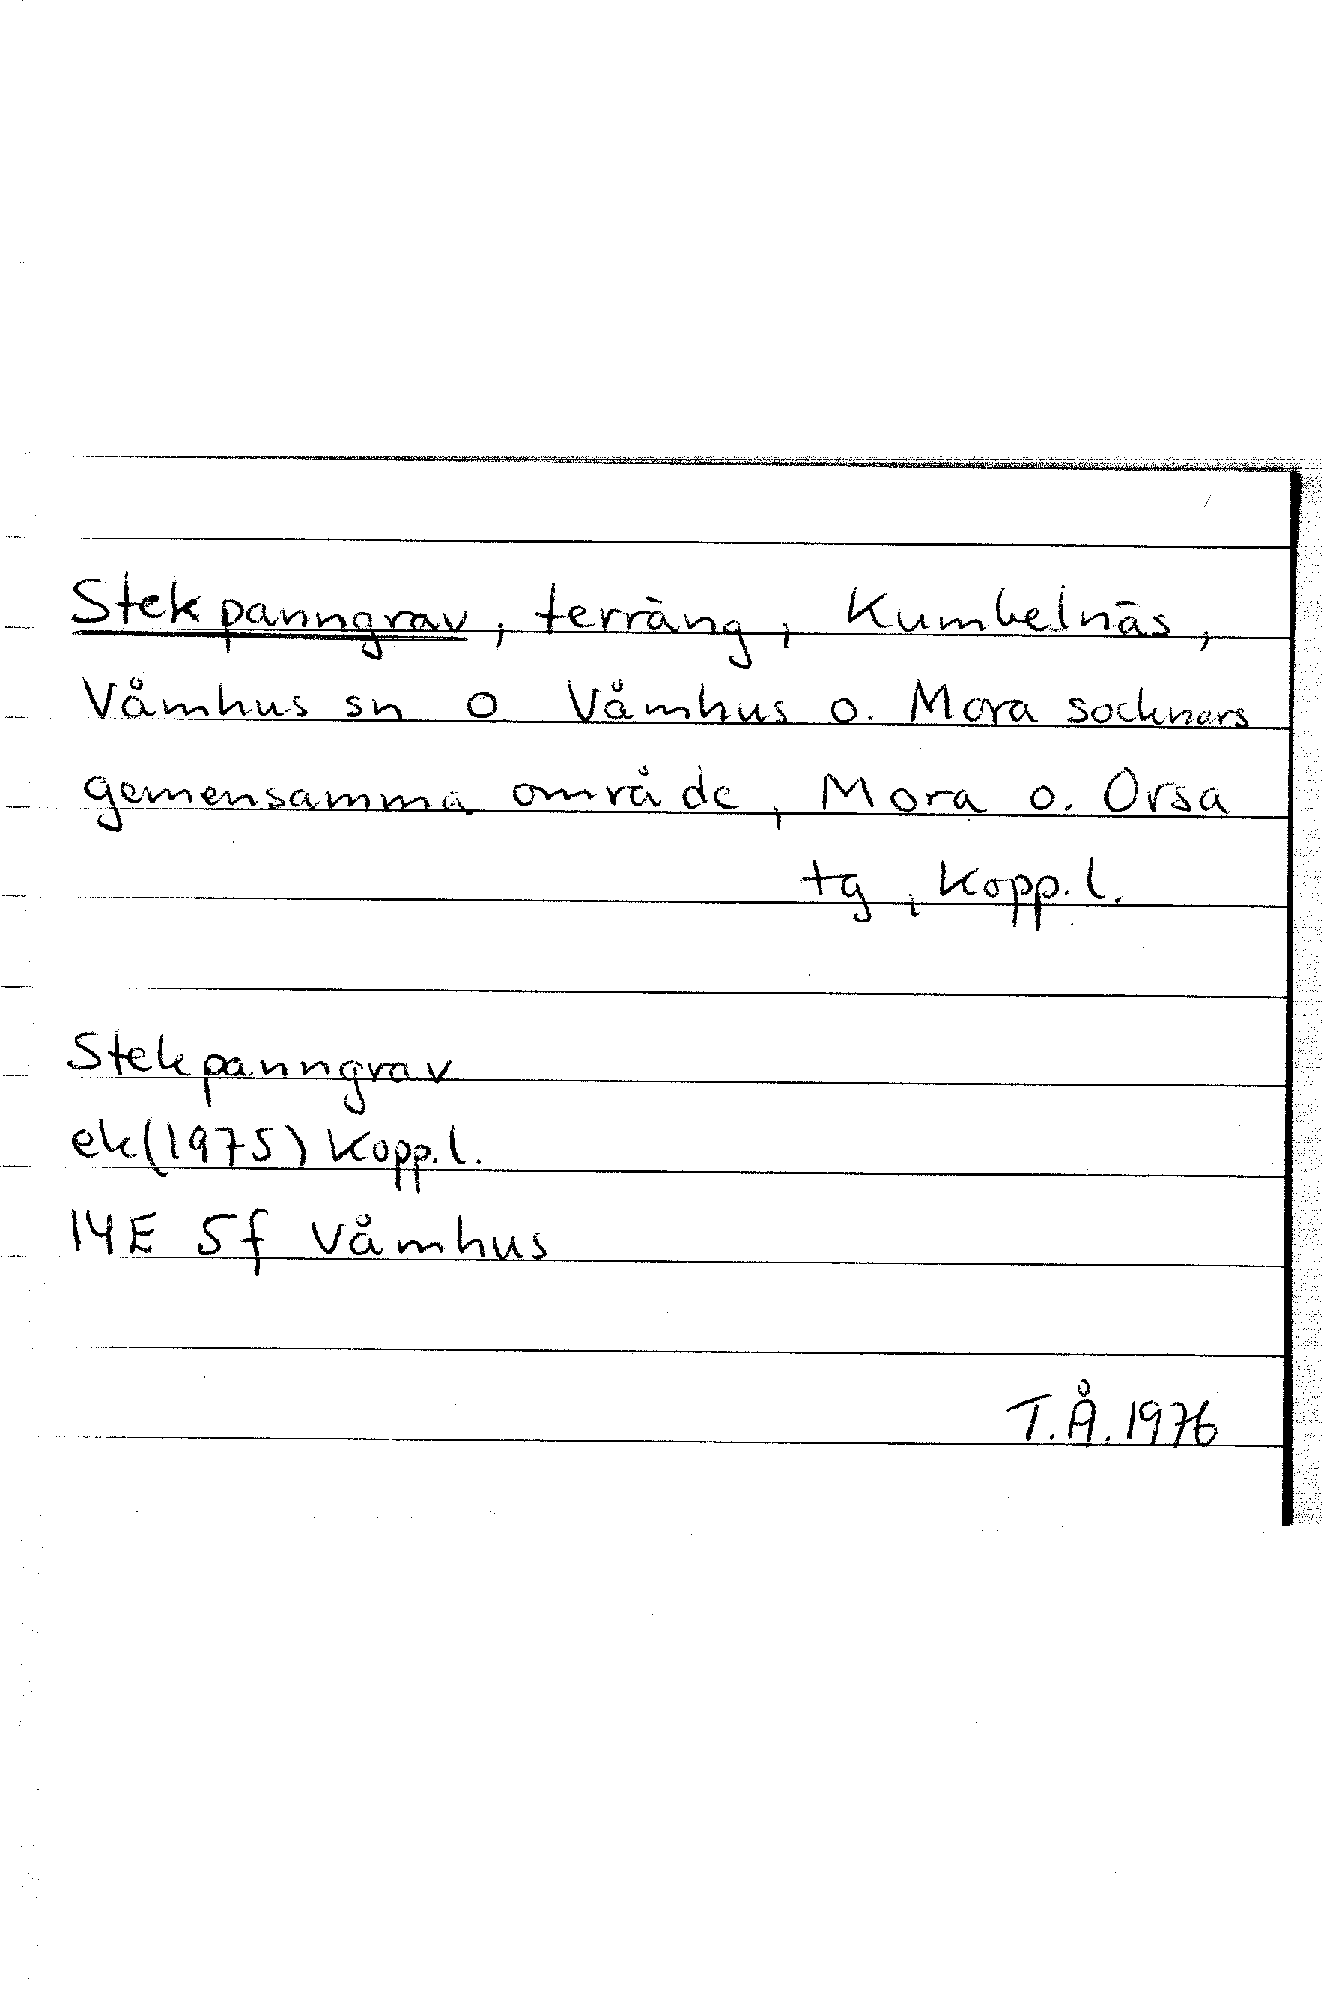 Stekpanngrav, terräng, Kumbelnäs,
Våmhus sn o Våmhus o. Mora socknars
gemensamma område, Mora o. Orsa
tg, Kopp.l.
Stekpanngrav
ek(1975) Kopp.l.
14E 5f Våmhus
T.Å.1976